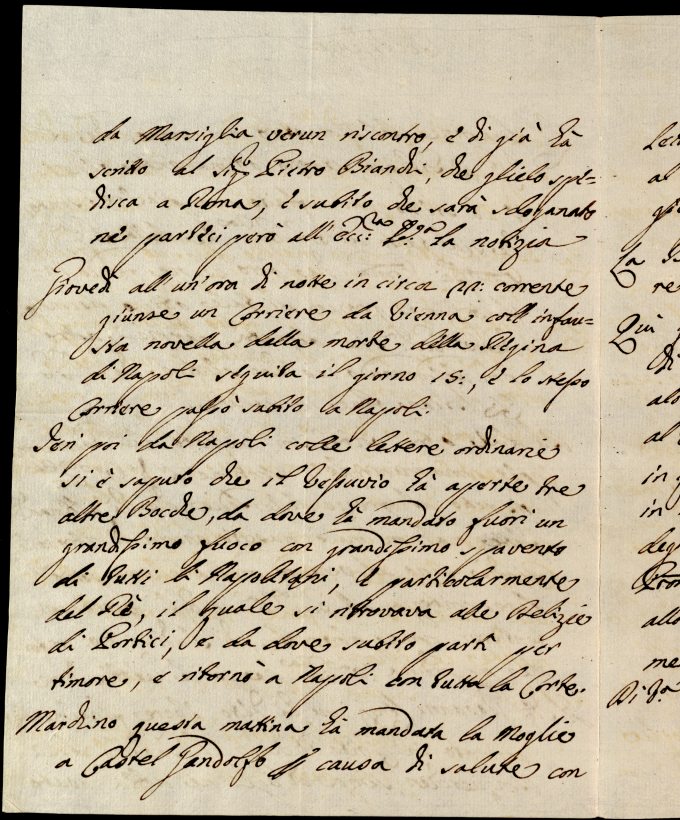 da Marsiglia verun riscontro, è di già hà
scritto al Sig.r Pietro Bianchi, che glielo spe=
disca a Roma, e subito che sarà sdoganato
ne parteciperò all' Ecc:za V:ra la notizia
Giovedì all' un' ora di notte in circa 22: corrente
giunse un Corriere da Vienna coll' infau=
sta novella della morte della Regina
di Napoli seguita il giorno 15:, e lo stesso
Corriere passò subito a Napoli.
Ieri poi da Napoli colle lettere ordinarie
si è saputo che il Vessuvio hà aperte tre
altre Bocche, da dove hà mandato fuori un
grandissimo fuoco con grandissimo spavento
di tutti li Napolitani, e particolarmente
del Rè, il quale si ritrovava alle Delizie
di Portici, e da dove subito partì per
timore, e ritornò a Napoli con tutta la Corte.
Marchino questa mattina hà mandata la Moglie
a Castel Gandolfo causa di salute con
al
La
re
Quì
al
in
in
allo
me
Di V.a